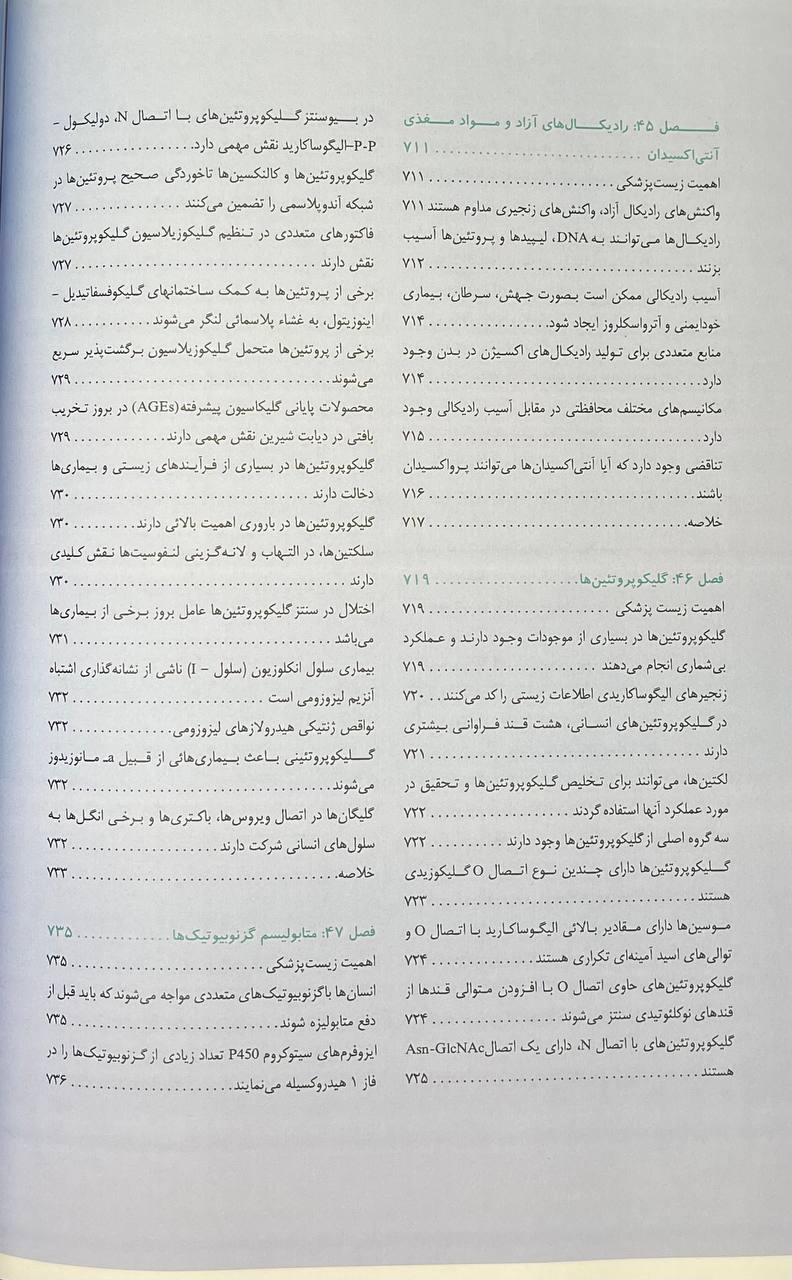 فصل ۴۵: رادیکال‌های آزاد و مواد مغذی
آنتی‌اکسیدان ............................ ۷۱۱
اهمیت زیست‌پزشکی ............................ ۷۱۱
واکنش‌های رادیکال آزاد، واکنش‌های زنجیری مداوم هستند ۷۱۱
رادیکال‌ها می‌توانند به DNA، لیپیدها و پروتئین‌ها آسیب
بزنند ............................ ۷۱۲
آسیب رادیکالی ممکن است بصورت جهش، سرطان، بیماری
خودایمنی و آترواسکلروز ایجاد شود. ............................ ۷۱۴
منابع متعددی برای تولید رادیکال‌های اکسیژن در بدن وجود
دارد ............................ ۷۱۴
مکانیسم‌های مختلف محافظتی در مقابل آسیب رادیکالی وجود
دارد ............................ ۷۱۵
تناقضی وجود دارد که آیا آنتی‌اکسیدان‌ها می‌توانند پرواکسیدان
باشند ............................ ۷۱۶
خلاصه ............................ ۷۱۷
فصل ۴۶: گلیکوپروتئین‌ها ............................ ۷۱۹
اهمیت زیست پزشکی ............................ ۷۱۹
گلیکوپروتئین‌ها در بسیاری از موجودات وجود دارند و عملکرد
بی‌شماری انجام می‌دهند ............................ ۷۱۹
زنجیرهای الیگوساکاریدی اطلاعات زیستی را کد می‌کنند .. ۷۲۰
در گلیکوپروتئین‌های انسانی، هشت قند فراوانی بیشتری
دارند ............................ ۷۲۱
لکتین‌ها، می‌توانند برای تخلیص گلیکوپروتئین‌ها و تحقیق در
مورد عملکرد آنها استفاده گردند ............................ ۷۲۲
سه گروه اصلی از گلیکوپروتئین‌ها وجود دارند .......... ۷۲۲
گلیکوپروتئین‌ها دارای چندین نوع اتصال O گلیکوزیدی
هستند ............................ ۷۲۳
موسین‌ها دارای مقادیر بالائی الیگوساکارید با اتصال O و
توالی‌های اسید آمینه‌ای تکراری هستند ............................ ۷۲۴
گلیکوپروتئین‌های حاوی اتصال O با افزودن متوالی قندها از
قندهای نوکلئوتیدی سنتز می‌شوند ............................ ۷۲۴
گلیکوپروتئین‌های با اتصال N، دارای یک اتصال Asn-GlcNAc
هستند ............................ ۷۲۵
در بیوسنتز گلیکوپروتئین‌های با اتصال N، دولیکول –
P-P–الیگوساکارید نقش مهمی دارد. ............................ ۷۲۶
گلیکوپروتئین‌ها و کالنکسین‌ها تاخوردگی صحیح پروتئین‌ها در
شبکه آندوپلاسمی را تضمین می‌کنند ............................ ۷۲۷
فاکتورهای متعددی در تنظیم گلیکوزیلاسیون گلیکوپروتئین‌ها
نقش دارند ............................ ۷۲۷
برخی از پروتئین‌ها به کمک ساختمانهای گلیکوفسفاتیدیل –
اینوزیتول، به غشاء پلاسمائی لنگر می‌شوند ............................ ۷۲۸
برخی از پروتئین‌ها متحمل گلیکوزیلاسیون برگشت‌پذیر سریع
می‌شوند ............................ ۷۲۹
محصولات پایانی گلیکاسیون پیشرفته(AGEs) در بروز تخریب
بافتی در دیابت شیرین نقش مهمی دارند ............................ ۷۲۹
گلیکوپروتئین‌ها در بسیاری از فرآیندهای زیستی و بیماری‌ها
دخالت دارند ............................ ۷۳۰
گلیکوپروتئین‌ها در باروری اهمیت بالائی دارند ......... ۷۳۰
سلکتین‌ها، در التهاب و لانه‌گزینی لنفوسیت‌ها نقش کلیدی
دارند ............................ ۷۳۰
اختلال در سنتز گلیکوپروتئین‌ها عامل بروز برخی از بیماری‌ها
می‌باشد ............................ ۷۳۱
بیماری سلول انکلوزیون (سلول – I) ناشی از نشانه‌گذاری اشتباه
آنزیم لیزوزومی است ............................ ۷۳۲
نواقص ژنتیکی هیدرولازهای لیزوزومی ............................ ۷۳۲
گلیکوپروتئینی باعث بیماری‌هائی از قبیل a_ مانوزیدوز
می‌شوند ............................ ۷۳۲
گلیگان‌ها در اتصال ویروس‌ها، باکتری‌ها و برخی انگل‌ها به
سلول‌های انسانی شرکت دارند ............................ ۷۳۲
خلاصه ............................ ۷۳۳
فصل ۴۷: متابولیسم گزنوبیوتیک‌ها ............................ ۷۳۵
اهمیت زیست‌پزشکی ............................ ۷۳۵
انسان‌ها باگزنوبیوتیک‌های متعددی مواجه می‌شوند که باید قبل از
دفع متابولیزه شوند ............................ ۷۳۵
ایزوفرم‌های سیتوکروم P450 تعداد زیادی از گزنوبیوتیک‌ها را در
فاز ۱ هیدروکسیله می‌نمایند ............................ ۷۳۶